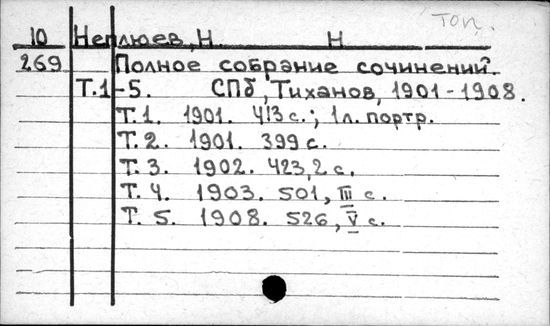 Топ.
10 Неплюев, Н. Н
269 Полное собрание сочинений.
Т.1-5. СПб, Тиханов, 1901-1908.
Т. 1. 1901. 413 с.; 1л. портр.
Т. 2. 1901. 399 с.
Т. 3. 1902. 423,2 с.
Т. 4. 1903. 501, III с.
Т. 5. 1908. 526, V с.